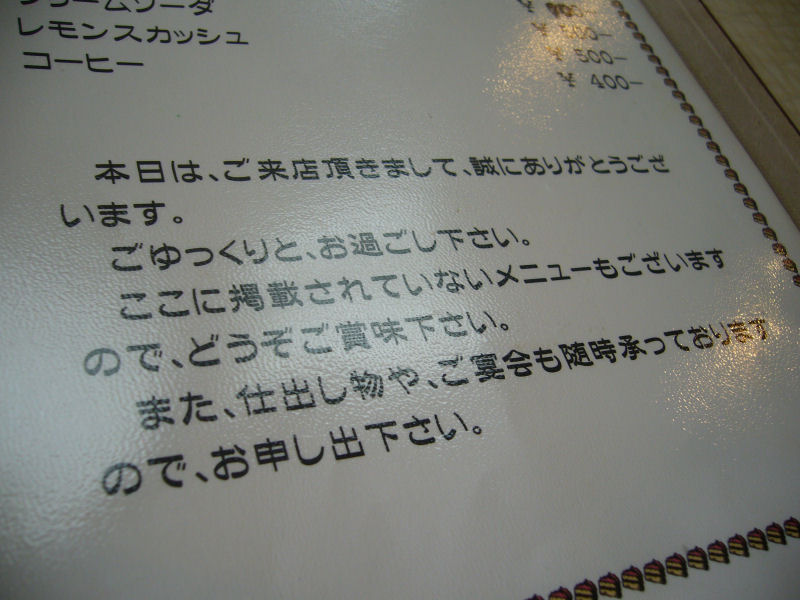 クリームソーダ
レモンスカッシュ ¥ 500-
コーヒー ¥ 500-
¥ 400-
本日は、ご来店頂きまして、誠にありがとうござ
います。
ごゆっくりと、お過ごし下さい。
ここに掲載されていないメニューもございます
ので、どうぞご賞味下さい。
また、仕出し物や、ご宴会も随時承っております
ので、お申し出下さい。